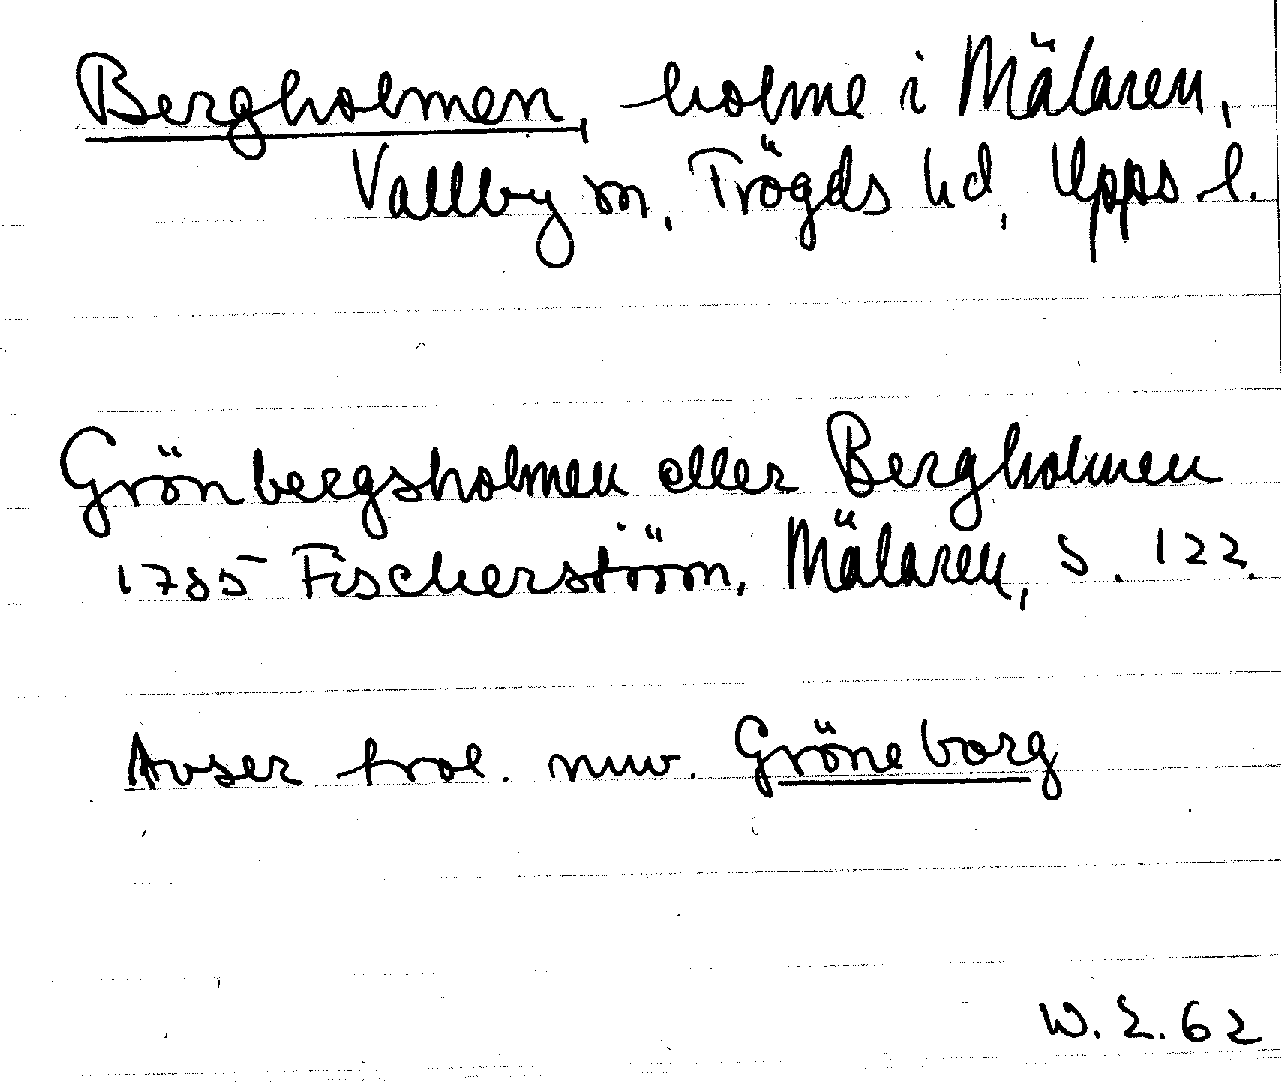 Bergholmen, holme i Mälaren,
Vallby sn, Trögds hd, Upps l.
Grönbergsholmen eller Bergholmen
1785 Fischerström, Mälaren, s. 122.
Avser trol. nuv. Gröneborg
W. E. 62